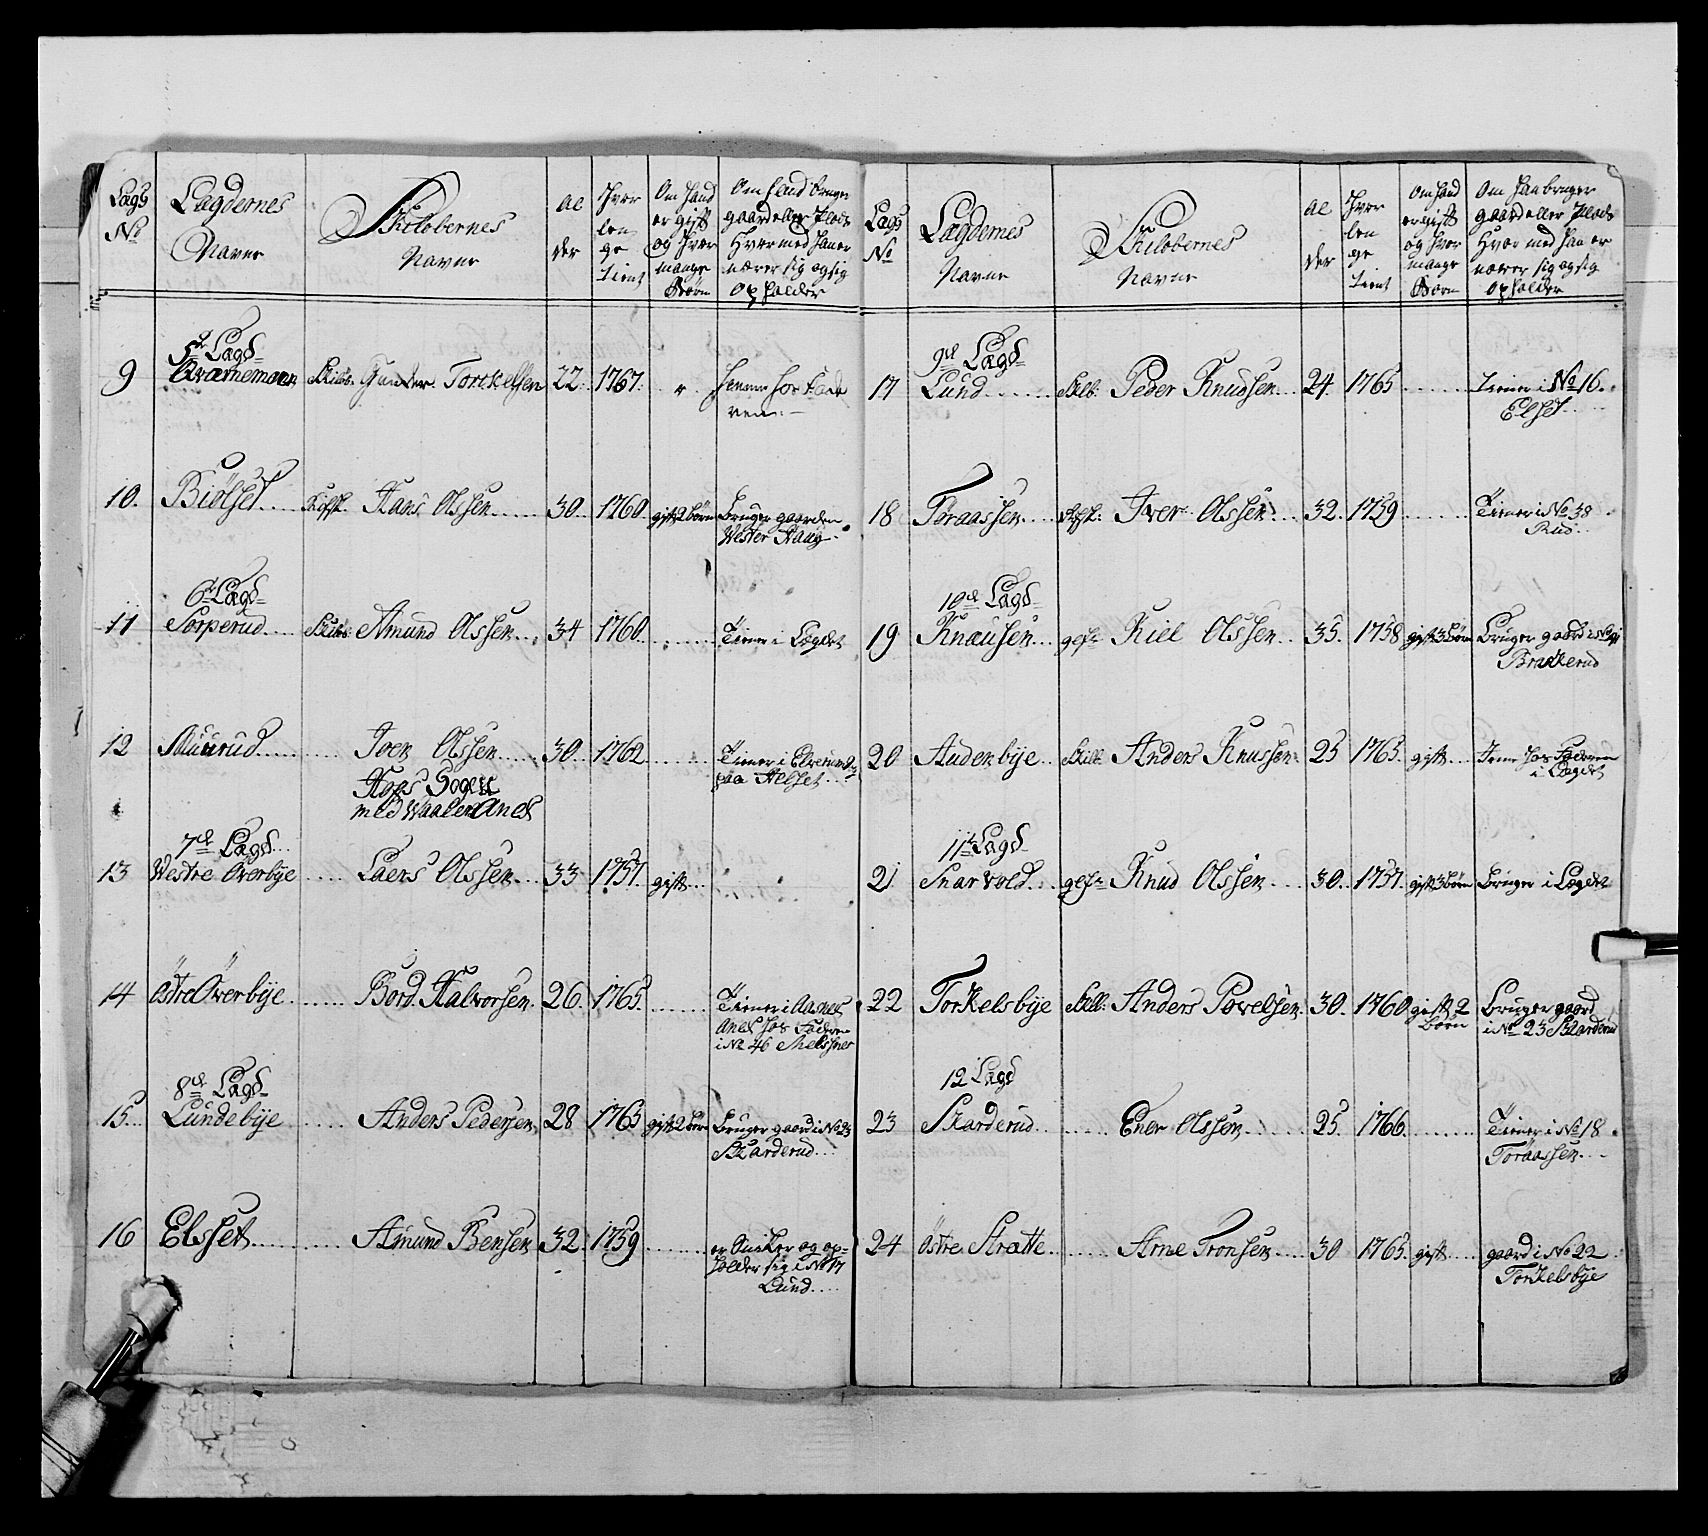 Lægs No
Lægdernes Navne
Skiløbernes Navne
Al der
Hvor len ge tient
Om hand er gift og hvor mange Børn
Om hand bruger gaard eller Plads Hvor med han er nærer sig og sig opholder
5te Lægd
9 Kværnemoen Skilb. Gunder Torckelsen 22. 1767. " hiemme hos Fade ren.
10. Biölset Hans Olssen 30. 1760. gift 2 börn Bruger gaarden Wester Haug.
6te Lægd
11 Sorperud Skilb. Amund Olssen 34 1760. Tiener i Lægdet
12 Muurud Joen Olssen 30. 1762 Tiener i Elverum paa Melset
Hofs Sogn med Waaler Anex
7de Lægd
13 Westre Overbye Laers Olssen 33 1757. gift
14 Østre Överbye Bord Halvorsen 26. 1765. Tiener i Aasnes Anex hos Faderen i No 46
8de Lægd
15 Lundebye Anders Pedersen 28 1763 gift 2 børn Bruger gaard i No 23 Skarderud.
16 Elsset Amund Bensen 32. 1759 er Sniker og op= holder sig i No 17 Lund.
Lægs No
Lægdernes Navne
Skilöbernes Navne
Al der
Hvor len ge tient
Om hand er gift og hvor mange Børn
Om han bruger gaard eller Plads Hvor med han er nærer sig og sig opholder
9de Lægd
17 Lund Skilb. Peder Knudsen 24. 1765 Tiener i No 16. Elset
18 Töraassen Iver Olssen 32. 1759 Tiener i No 38 Rud.
10de Lægd
19 Knausen gef. Kiel Olssen 35. 1758 gift 3 börn Bruger gaard i No Brakkerud
20 Audenbye Skilb. Anders Knussen 25 1765. gift hos Faderen i Lægdet
11te Lægd
21 Snarvold gef. Knud Olssen 30. 1757. gift 3 börn Bruger i Lægdet
22 Torkelsbye Skilb. Anders Povelsen. 30. 1760 gift 2 Børn Bruger gaard i No 23 Skarderud
12 Lægd
23 Skarderud Ener Olssen 25. 1766. Tiener i No 18 Töraassen.
24 Østre Stratte Arne Tronsen 30 1765. gift gaard i No 22 Torkelsbye